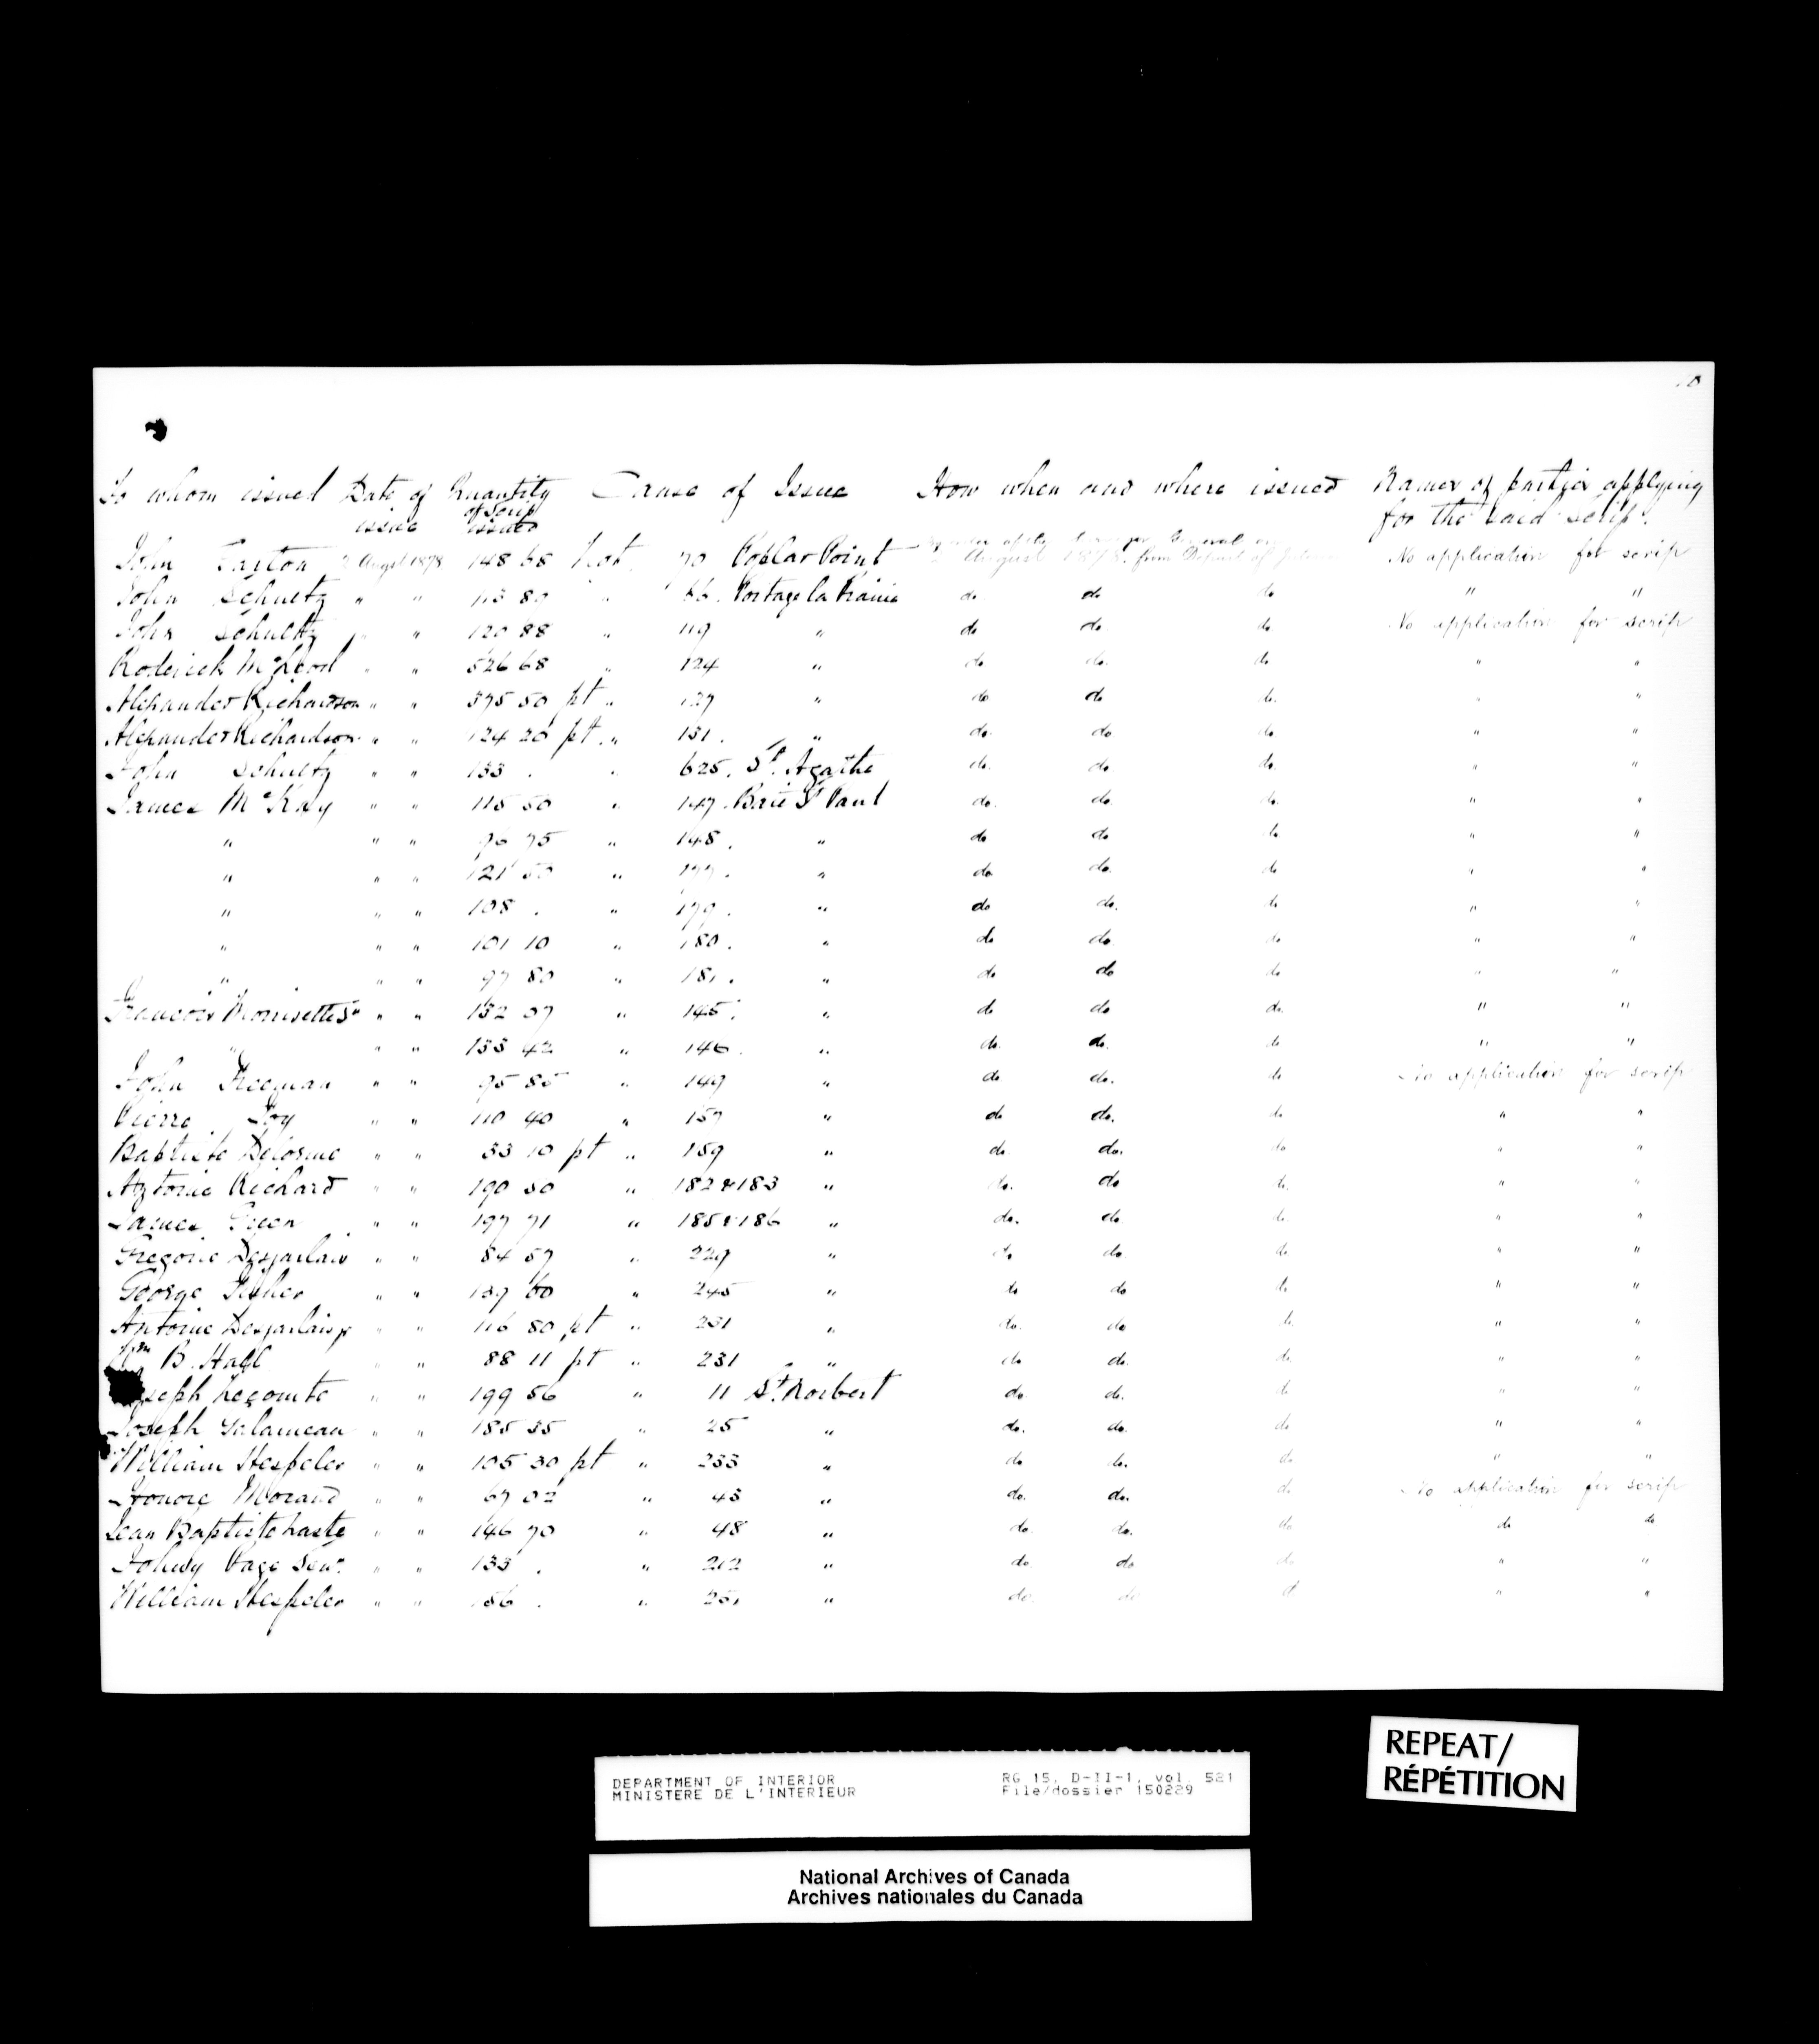 To whom issued Date of issue Quantity of Scrip issued Cause of Issue How when and where issued Names of parties applying for the said Scrip.
John 2 Augst 1878 148 68 Lot 70 Poplar Point August 1878 from Depart of No application for scrip
John Schultz " " 89 " 66. Portage la Prairie do do do " "
John Schultz " " 120 88 " 119 " do do do No application for scrip
Roderick McLeod " " 526 68 " 124 " do do. do " "
Alexander Richardson " " 375 50 pt " 127 " do do do. " "
Alexander Richardson " " 124 20 pt. " 131. " do. do do. " "
John Schultz " " 133 . " 625. St. Agathe do. do do. " "
James McKay " " 115 50 " 147. Baie St Paul do. do. do. " "
" " " 96 75 " 148. " do do do " "
" " " 121 50 " 177. " do do. do " "
" " " 108 . " 179. " do do. do " "
" " " 101 10 " 180. " do do do " "
" " " 97 80 " 181. " do do do " "
Francois Morrisette Sr " " 132 07 " 145. " do do do. " "
" " " 133 42 " 146. " do. do. do " "
John Freeman " " 95 85 " 149 " do do. do No application for scrip
Pierre " " 110 40 " 157 " do do. do " "
Baptiste Delorme " " 33 10 pt " 159 " do. do. do " "
Antoine Richard " " 190 30 " 182 & 183 " do. do do. " "
James Green " " 197 71 " 185 & 186 " do. do do. " "
Gregoire Desjarlais " " 84 57 " 229 " do do do. " "
George Fisher " " 137 60 " 245 " do do do. " "
Antoine Desjarlais jr " " 116 80 pt " 231 " do. do do. " "
Wm B. Hall " " 88 11 pt " 231 " do do. do. " "
Joseph Lecomte " " 199 56 " 11 St. Norbert do. do. do " "
Joseph " " 185 35 " 25 " do. do. do " "
William Hespeler " " 105 30 pt " 233 " do do. do " "
Honore Morand " " 67 02 " 43 " do. do. do No application for scrip
Jean Baptiste " " 146 70 " 48 " do do. do do do
Page Senr. " " 133 . " 212 " do do do " "
William Hespeler " " 56 . " 251 " do. do d " "
DEPARTMENT OF INTERIOR RG 15, D-II-1, vol. 521
MINISTERE DE L'INTERIEUR File/dossier 150229
REPEAT/
RÉPÉTITION
National Archives of Canada
Archives nationales du Canada